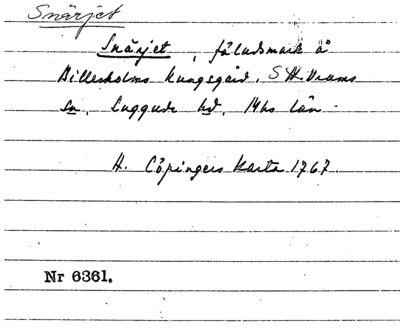 Snärjet
Snärjet, fäladsmark å
Billesholms kungsgård, S Vrams
sn, Luggude hd, Mhs län.
H. Cöpingers karta 1767.
Nr 6361.